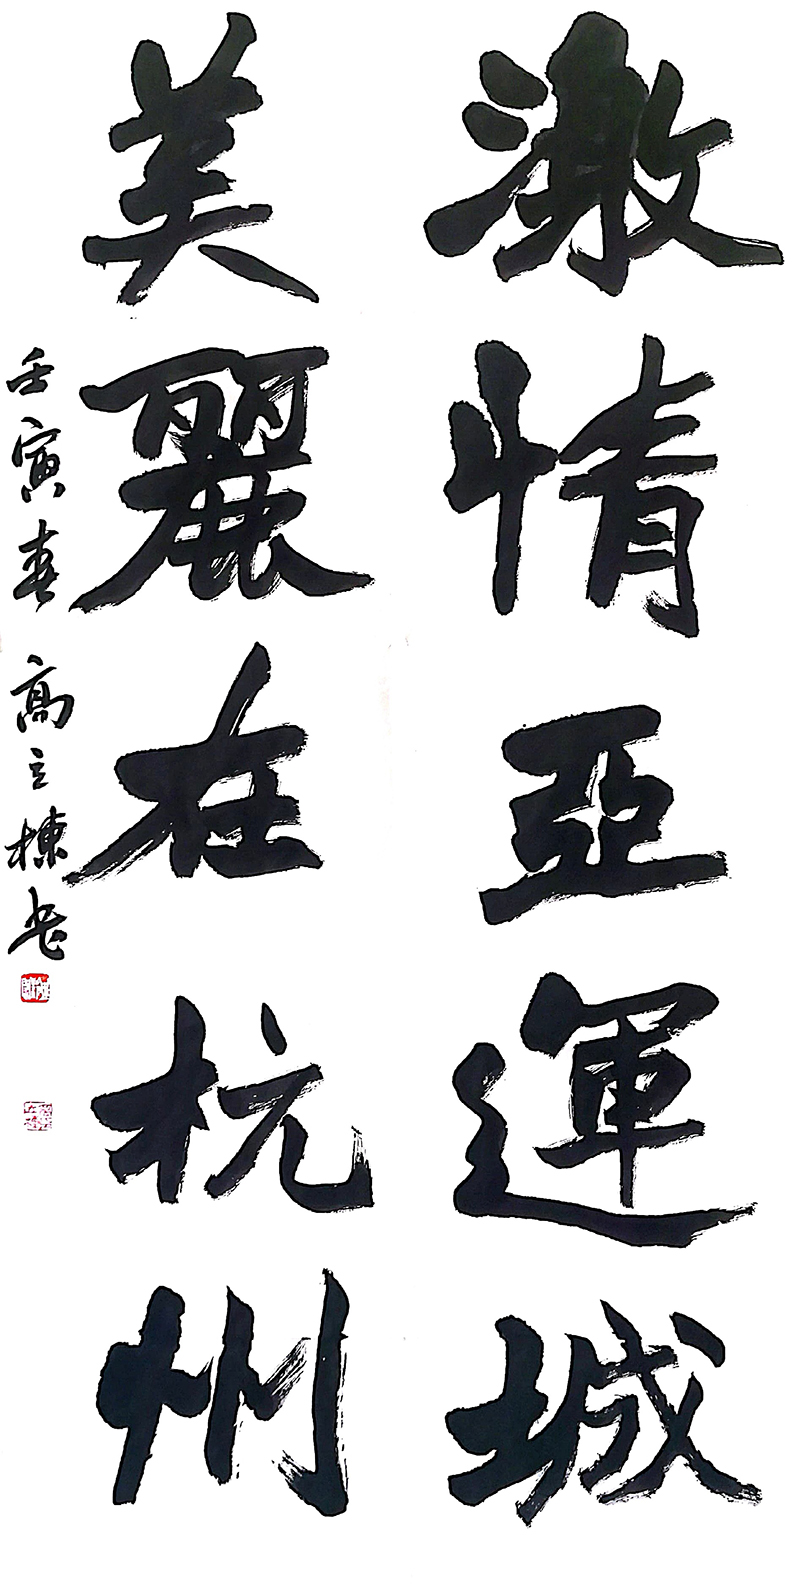 激情亞運城
美麗在杭州
壬寅春 高立棟书